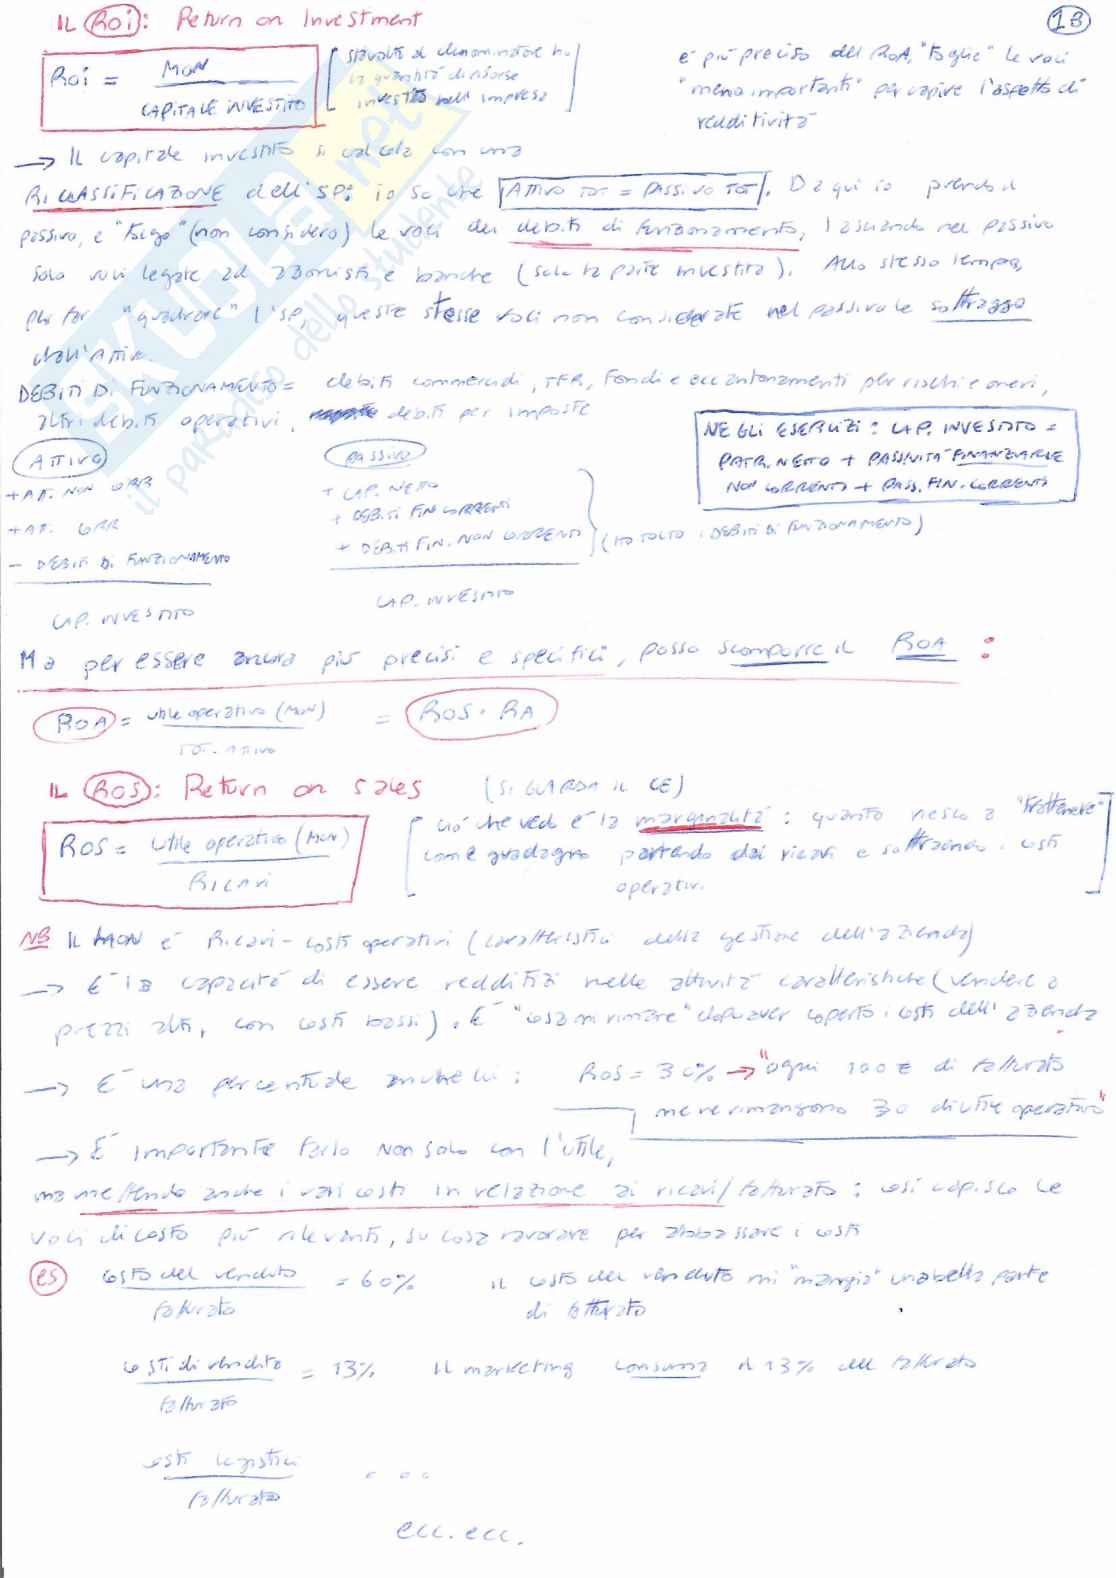 IL ROI: Return on Investment
1B
ROI = MON / CAPITALE INVESTITO
[stavolta al denominatore ho la quantità di risorse investite nell'impresa]
è più preciso del ROA, "toglie" le voci "meno importanti" per capire l'aspetto di redditività
→ Il capitale investito si calcola con una
RICLASSIFICAZIONE dell'SP: io so che ATTIVO TOT = PASSIVO TOT. Da qui io prendo il
passivo, e "tolgo" (non considero) le voci dei debiti di funzionamento, lasciando nel passivo
solo voci legate ad azionisti e banche (solo la parte investita). Allo stesso tempo,
per far "quadrare" l'SP, queste stesse voci non considerate nel passivo le sottraggo
dall'Attivo.
DEBITI DI FUNZIONAMENTO = debiti commerciali, TFR, Fondi e accantonamenti per rischi e oneri,
altri debiti operativi, debiti per imposte
NEGLI ESERCIZI: CAP. INVESTITO =
PATR. NETTO + PASSIVITÀ FINANZIARIE
NON CORRENTI + PASS. FIN. CORRENTI
ATTIVO
+ ATT. NON CORR
+ ATT. CORR
- DEBITI DI FUNZIONAMENTO
CAP. INVESTITO
PASSIVO
+ CAP. NETTO
+ DEBITI FIN CORRENTI
+ DEBITI FIN. NON CORRENTI
(HO TOLTO I DEBITI DI FUNZIONAMENTO)
CAP. INVESTITO
Ma per essere ancora più precisi e specifici, posso scomporre il ROA:
ROA = utile operativo (MON) / TOT. ATTIVO = ROS · RA
IL ROS: Return on sales (SI GUARDA IL CE)
ROS = utile operativo (MON) / RICAVI
[ciò che vedi è la marginalità: quanto riesco a "trattenere"
come guadagno partendo dai ricavi e sottraendo i costi
operativi.]
NB IL MON è Ricavi - costi operativi (caratteristici della gestione dell'azienda)
→ È la capacità di essere redditizi nelle attività caratteristiche (vendere a
prezzi alti, con costi bassi). È "cosa mi rimane" dopo aver coperto i costi dell'azienda
→ È una percentuale anche lui: ROS = 30% → "ogni 100€ di fatturato
me ne rimangono 30 di utile operativo"
→ È importante farlo non solo con l'utile,
ma mettendo anche i vari costi in relazione ai ricavi/fatturato: così capisco le
voci di costo più rilevanti, su cosa lavorare per abbassare i costi
es costo del venduto / fatturato = 60% il costo del venduto mi "mangia" una bella parte
di fatturato
costi di vendita / fatturato = 13% il marketing consuma il 13% del fatturato
costi logistici / fatturato ...
ecc. ecc.
SKUOLA.net
il paradiso dello studente